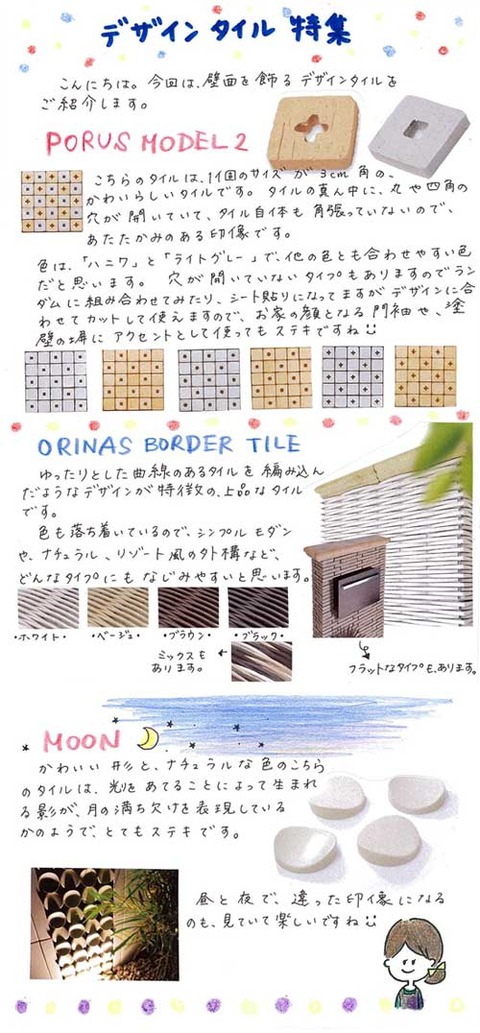 デザインタイル 特集
こんにちは。今回は、壁面を飾るデザインタイルを
ご紹介します。
PORUS MODEL2
こちらのタイルは、1個のサイズが3cm角の、
かわいらしいタイルです。タイルの真ん中に、丸や四角の
穴が開いていて、タイル自体も角張っていないので、
あたたかみのある印像です。
色は、「ハニワ」と「ライトグレー」で、他の色とも合わせやすい色
だと思います。穴が開いていないタイプもありますのでラン
ダムに組み合わせてみたり、シート貼りになってますがデザインに合
わせてカットして使えますので、お家の顔となる門袖や、塗
壁の塀にアクセントとして使ってもステキですね
ORINAS BORDER TILE
ゆったりとした曲線のあるタイルを編み込ん
だようなデザインが特徴の、上品なタイル
です。
色も落ち着いているので、シンプルモダン
や、ナチュラル、リゾート風の外構など、
どんなタイプにもなじみやすいと思います。
・ホワイト・ ・ベージュ・ ・ブラウン・ ・ブラック・
ミックスも
あります。
フラットなタイプも、あります。
MOON
かわいい形と、ナチュラルな色のこちら
のタイルは、光をあてることによって生まれ
る影が、月の満ち欠けを表現している
かのようで、とてもステキです。
昼と夜で、違った印像になる
のも、見ていて楽しいですね